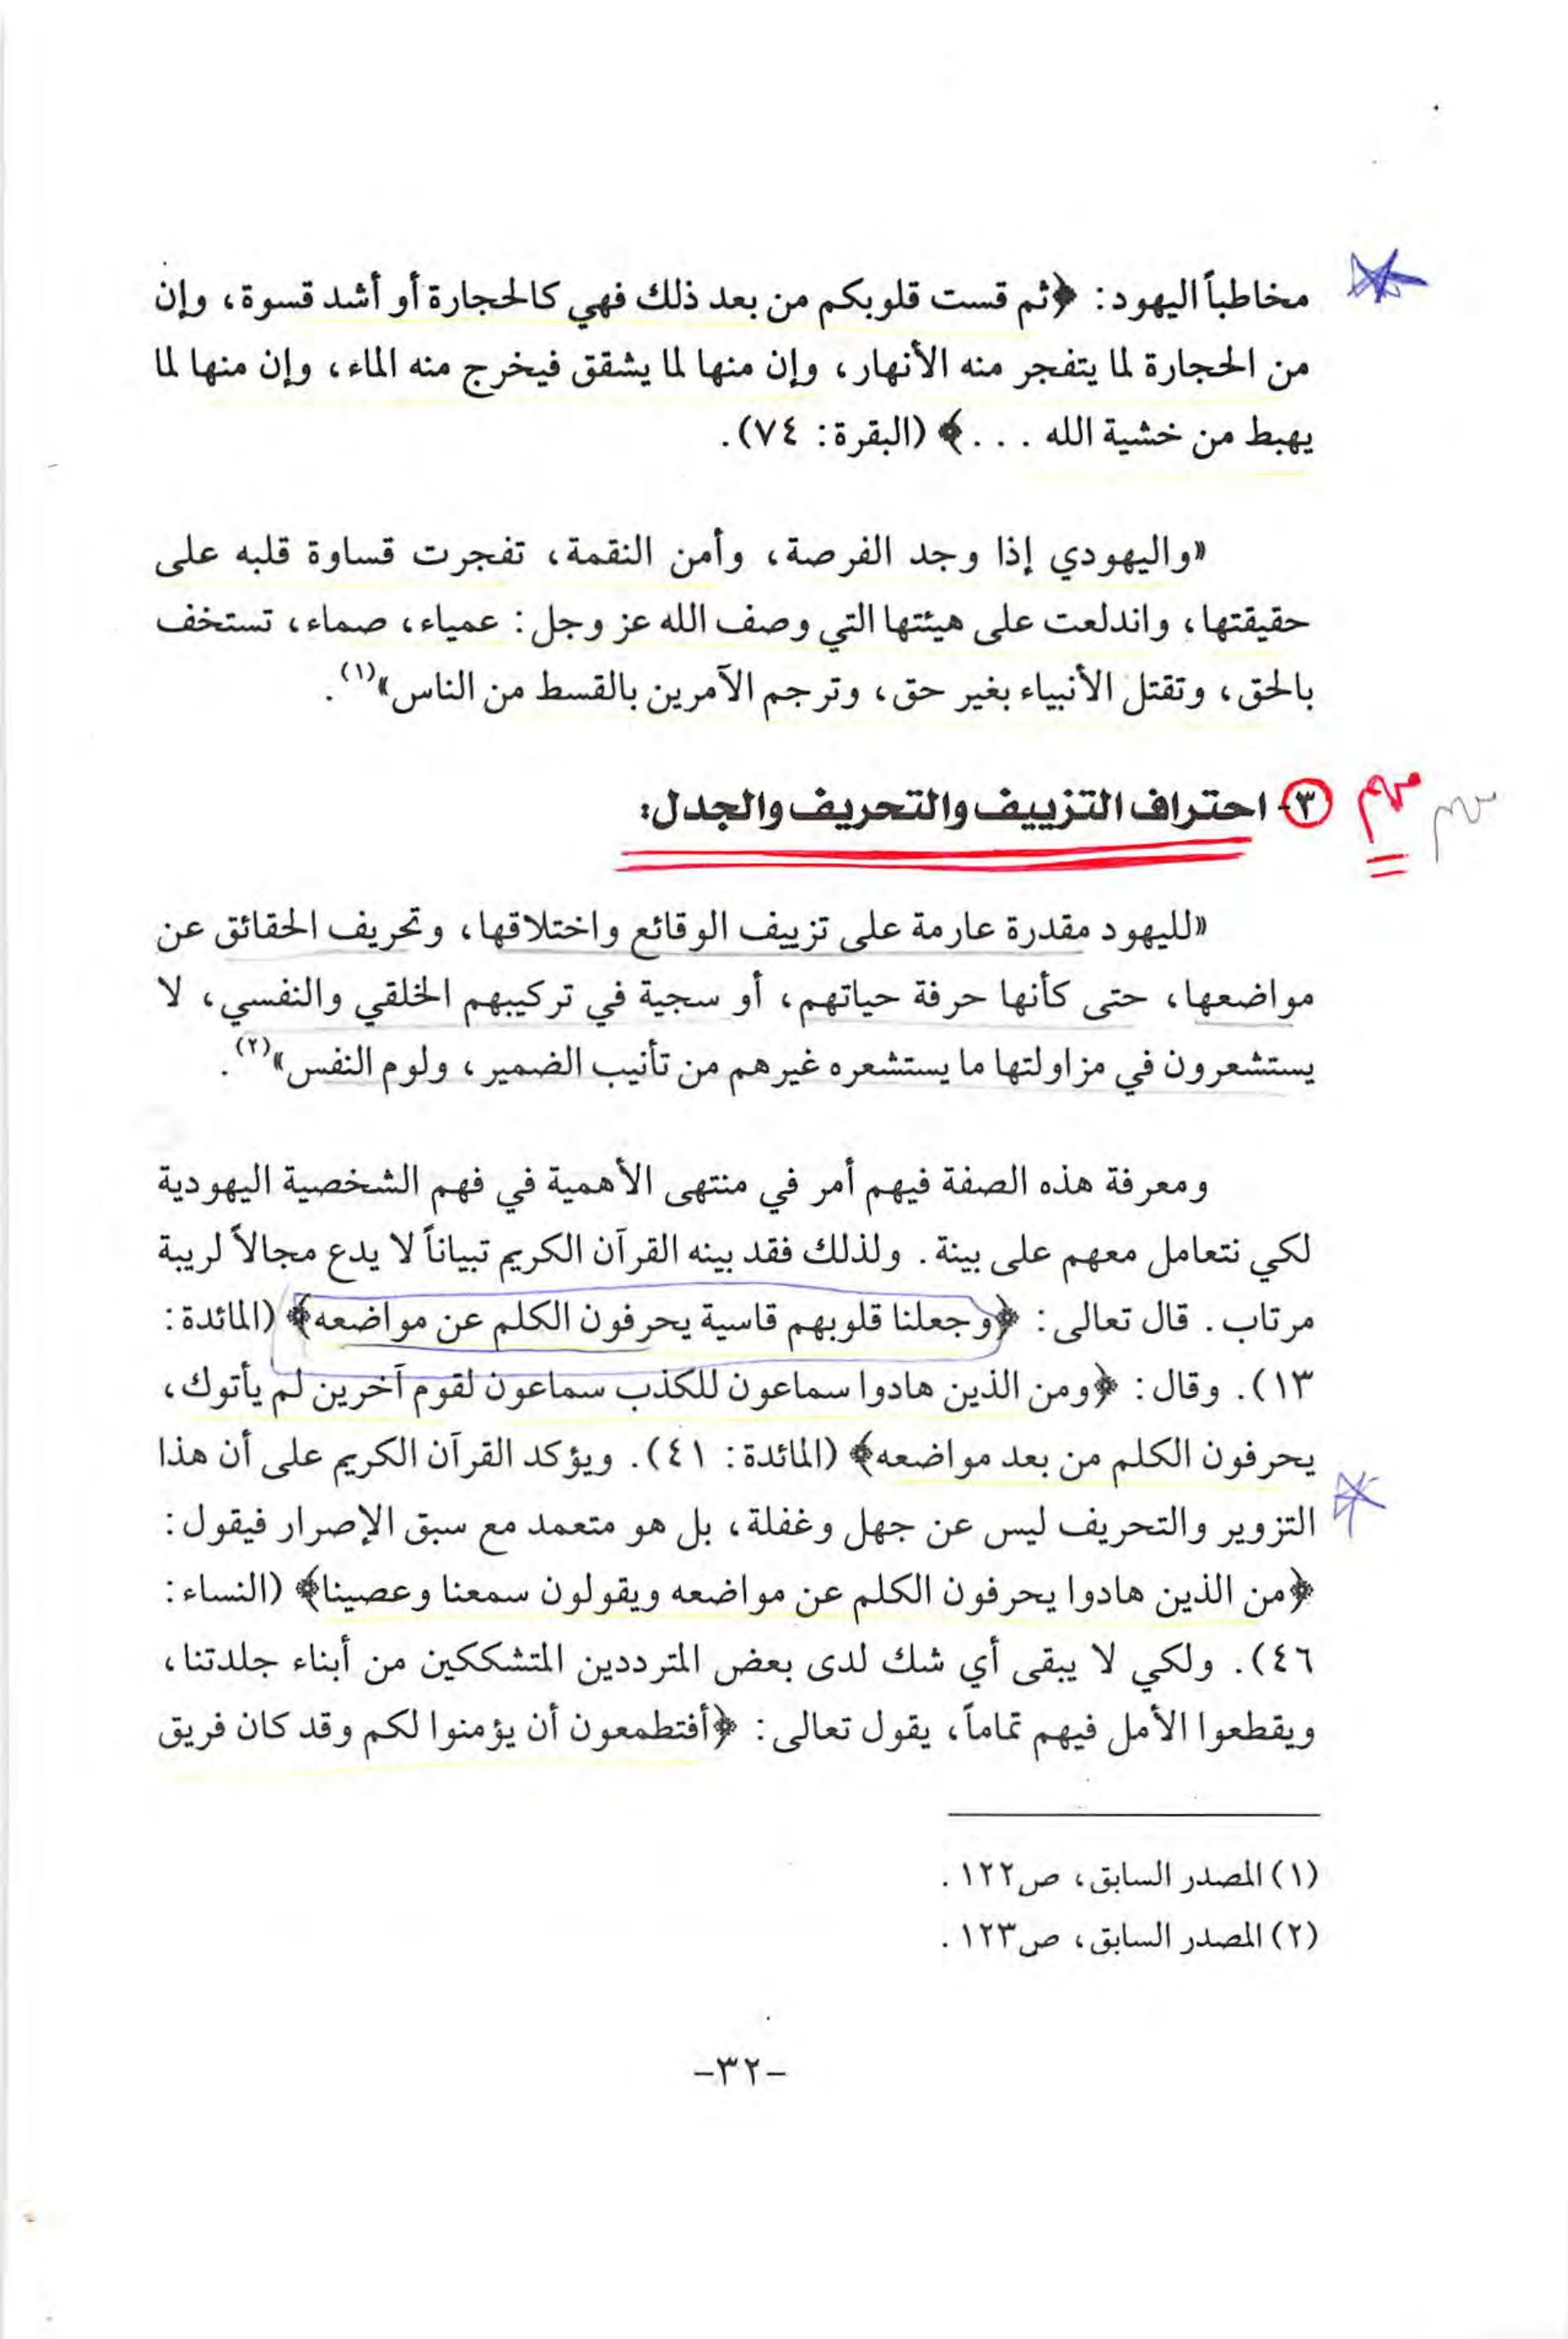 مخاطباً اليهود: ﴿ثم قست قلوبكم من بعد ذلك فهي كالحجارة أو أشد قسوة، وإن
من الحجارة لما يتفجر منه الأنهار، وإن منها لما يشقق فيخرج منه الماء، وإن منها لما
يهبط من خشية الله ...﴾ (البقرة: ٧٤).
«واليهودي إذا وجد الفرصة، وأمن النقمة، تفجرت قساوة قلبه على
حقيقتها، واندلعت على هيئتها التي وصف الله عز وجل: عمياء، صماء، تستخف
بالحق، وتقتل الأنبياء بغير حق، وترجم الآمرين بالقسط من الناس»(١).
٣- احتراف التزييف والتحريف والجدل: مهم مهم
«لليهود مقدرة عارمة على تزييف الوقائع واختلاقها، وتحريف الحقائق عن
مواضعها، حتى كأنها حرفة حياتهم، أو سجية في تركيبهم الخلقي والنفسي، لا
يستشعرون في مزاولتها ما يستشعره غيرهم من تأنيب الضمير، ولوم النفس»(٢).
ومعرفة هذه الصفة فيهم أمر في منتهى الأهمية في فهم الشخصية اليهودية
لكي نتعامل معهم على بينة. ولذلك فقد بينه القرآن الكريم تبياناً لا يدع مجالاً لريبة
مرتاب. قال تعالى: ﴿وجعلنا قلوبهم قاسية يحرفون الكلم عن مواضعه﴾ (المائدة:
١٣). وقال: ﴿ومن الذين هادوا سماعون للكذب سماعون لقوم آخرين لم يأتوك،
يحرفون الكلم من بعد مواضعه﴾ (المائدة: ٤١). ويؤكد القرآن الكريم على أن هذا
التزوير والتحريف ليس عن جهل وغفلة، بل هو متعمد مع سبق الإصرار فيقول:
﴿من الذين هادوا يحرفون الكلم عن مواضعه ويقولون سمعنا وعصينا﴾ (النساء:
٤٦). ولكي لا يبقى أي شك لدى بعض المترددين المتشككين من أبناء جلدتنا،
ويقطعوا الأمل فيهم تماماً، يقول تعالى: ﴿أفتطمعون أن يؤمنوا لكم وقد كان فريق
(١) المصدر السابق، ص١٢٢.
(٢) المصدر السابق، ص١٢٣.
-٣٢-